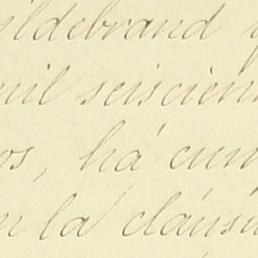 ildebrand y
mil seiscien
os, há cum
n la cláusu